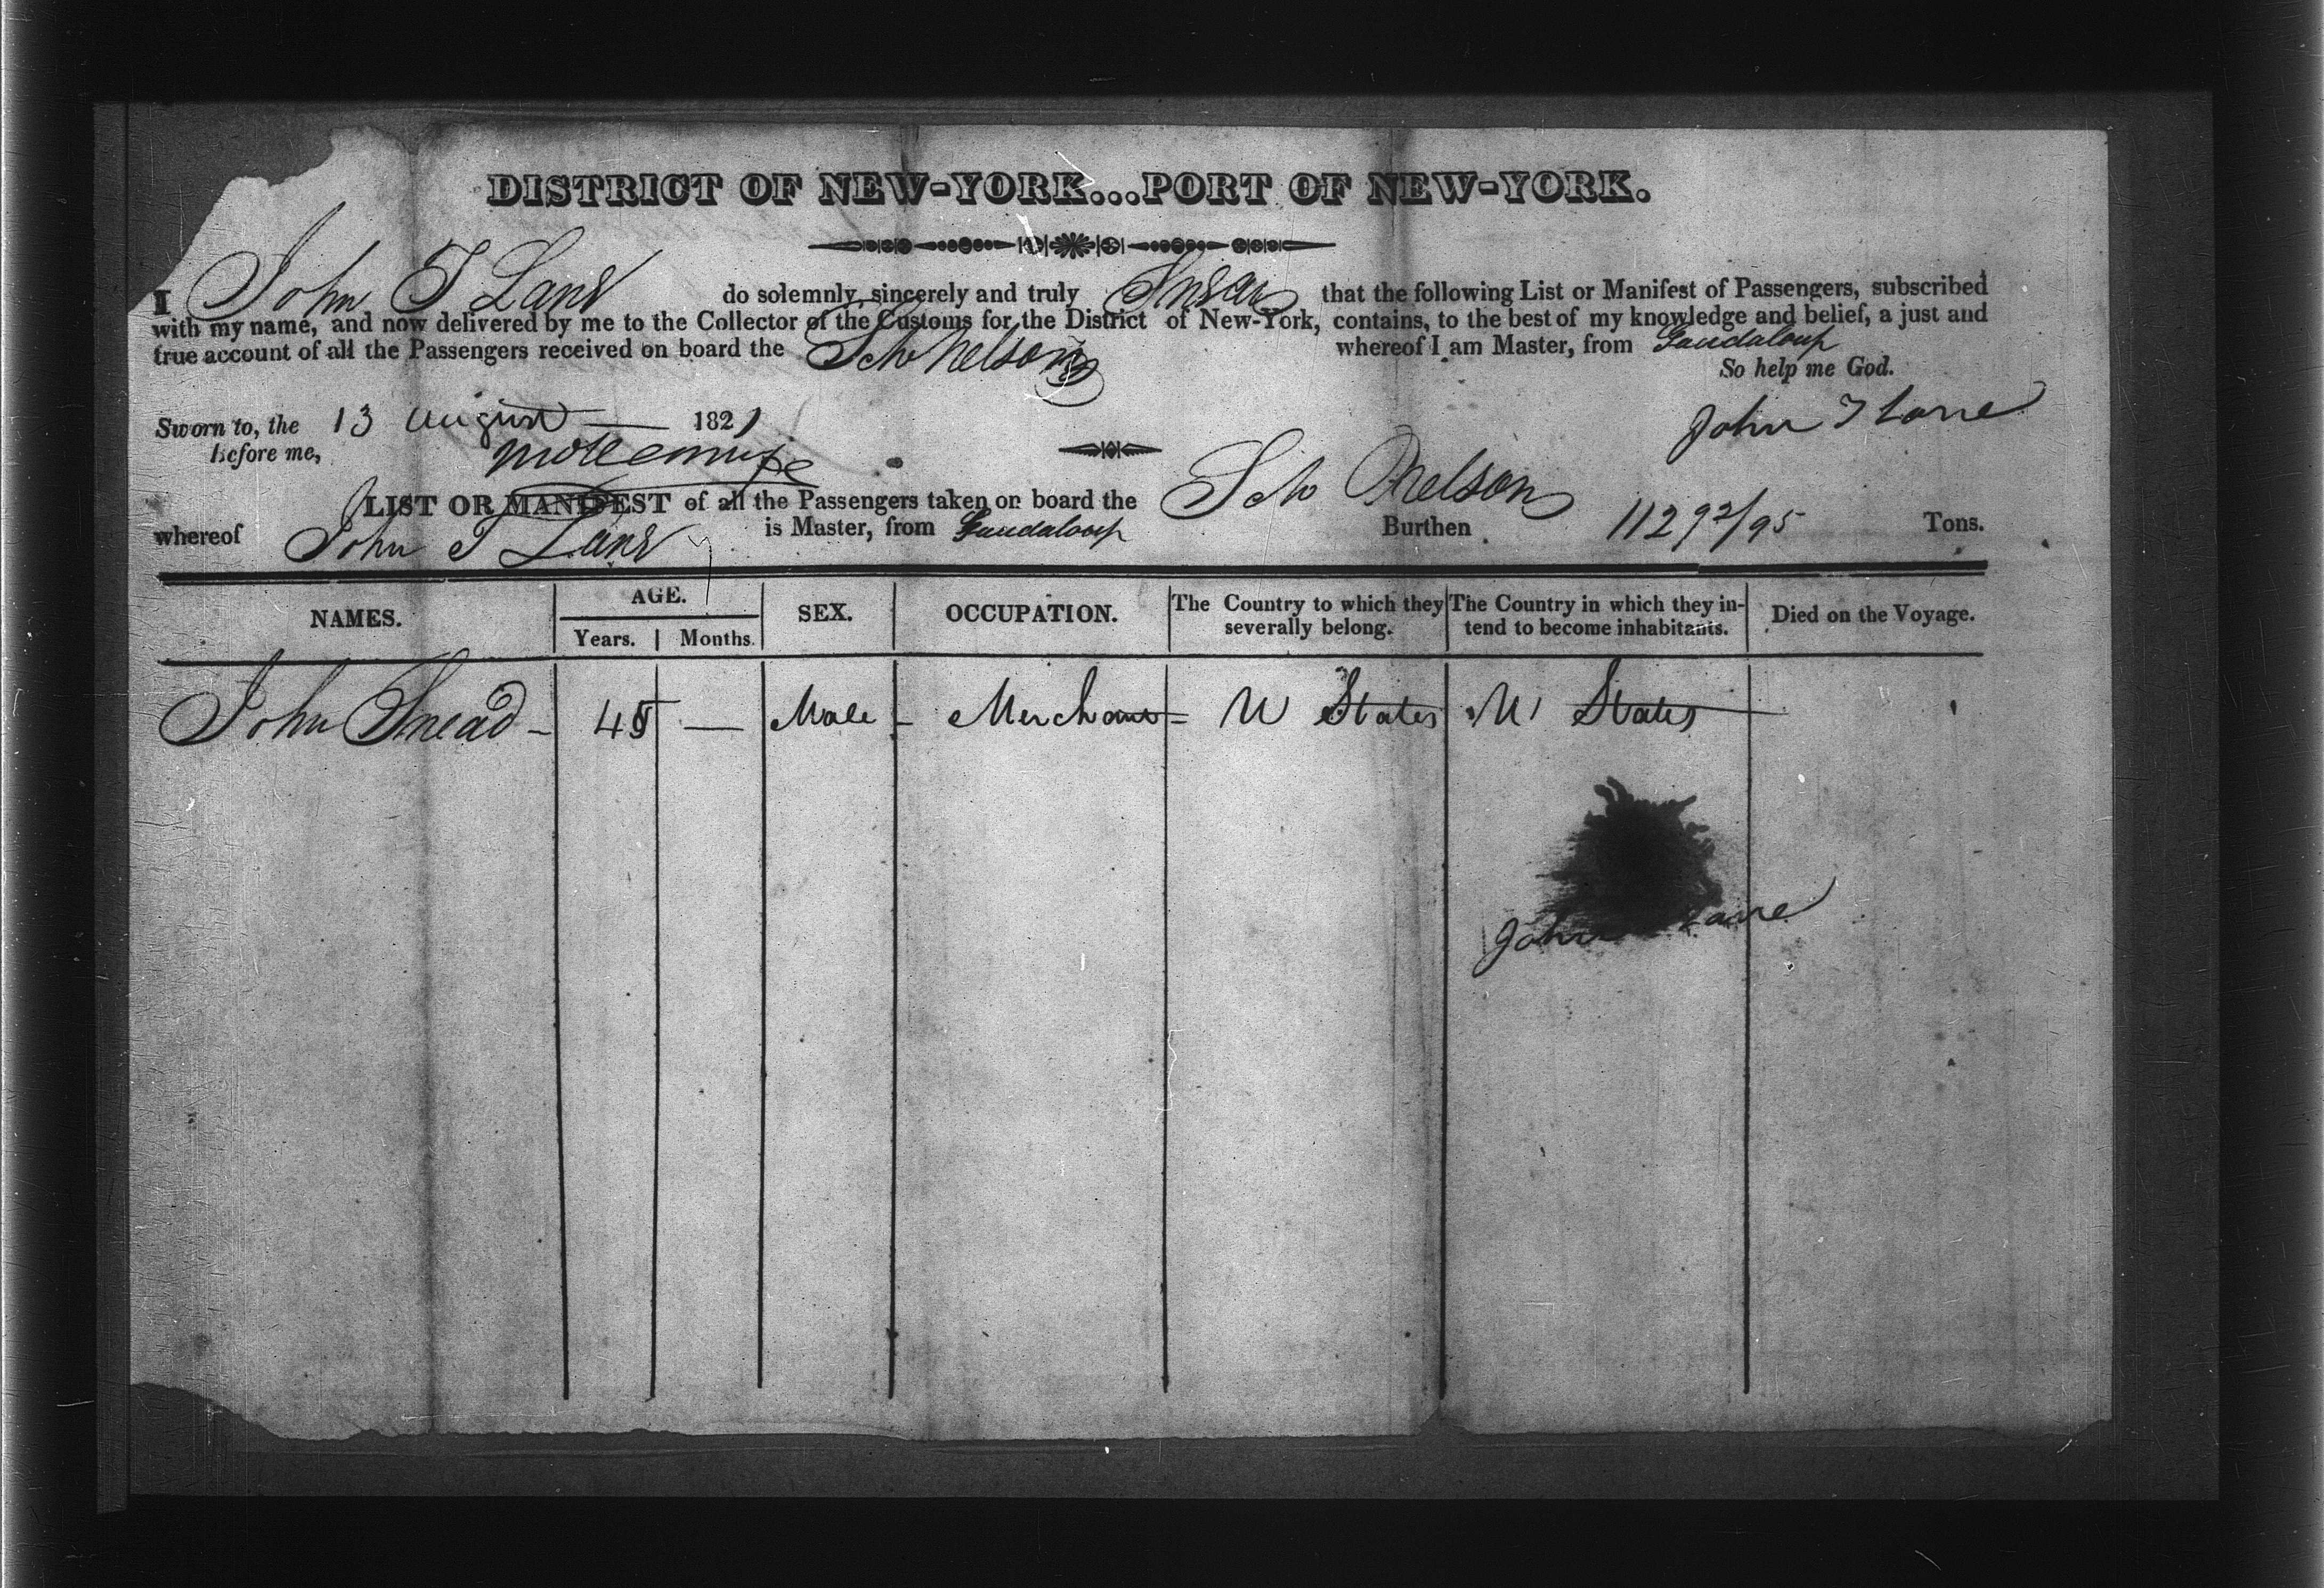 DISTRICT OF NEW-YORK...PORT OF NEW-YORK.
I John T Lane do solemnly, sincerely and truly Swear that the following List or Manifest of Passengers, subscribed
with my name, and now delivered by me to the Collector of the Customs for the District of New-York, contains, to the best of my knowledge and belief, a just and
true account of all the Passengers received on board the Sch Nelson whereof I am Master, from Gaudaloup
So help me God.
Sworn to, the 13 August 1821
John T Lane
Before me,
LIST OR MANIFEST of all the Passengers taken on board the Sch Nelson
whereof John T Lane is Master, from Gaudaloup Burthen 112 92/95 Tons.
NAMES. AGE. SEX. OCCUPATION. The Country to which they severally belong. The Country in which they intend to become inhabitants. Died on the Voyage.
Years. Months.
John Snead - 45 — Male - Merchant = U States U States
John Lane